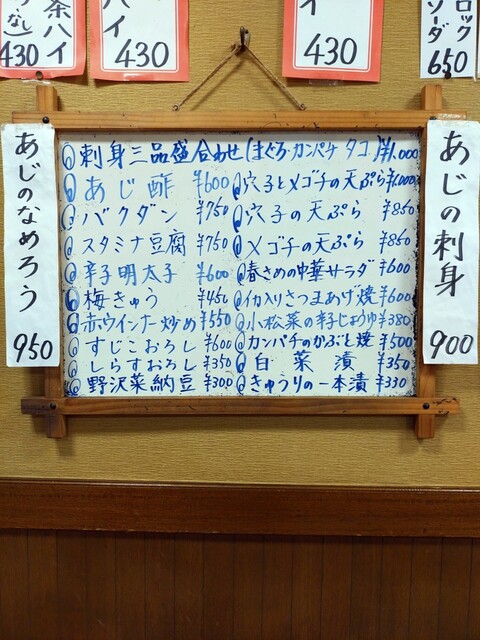 茶ハイ
なし)
430
ハイ
430
イ
430
ロック
ソーダ
650
あじのなめろう
950
刺身三品盛合わせ(まぐろ・カンパチ タコ) ¥1.000
あじ酢 ¥600
バクダン ¥750
スタミナ豆腐 ¥750
辛子明太子 ¥600
梅きゅう ¥450
赤ウインナー炒め ¥550
すじこおろし ¥600
しらすおろし ¥350
野沢菜納豆 ¥300
穴子とメゴチの天ぷら ¥1.000
穴子の天ぷら ¥850
メゴチの天ぷら ¥850
春さめの中華サラダ ¥600
イカ入りさつまあげ焼 ¥600
小松菜の辛子じょうゆ ¥380
カンパチのかぶと焼 ¥500
白菜漬 ¥350
きゅうりの一本漬 ¥330
あじの刺身
900